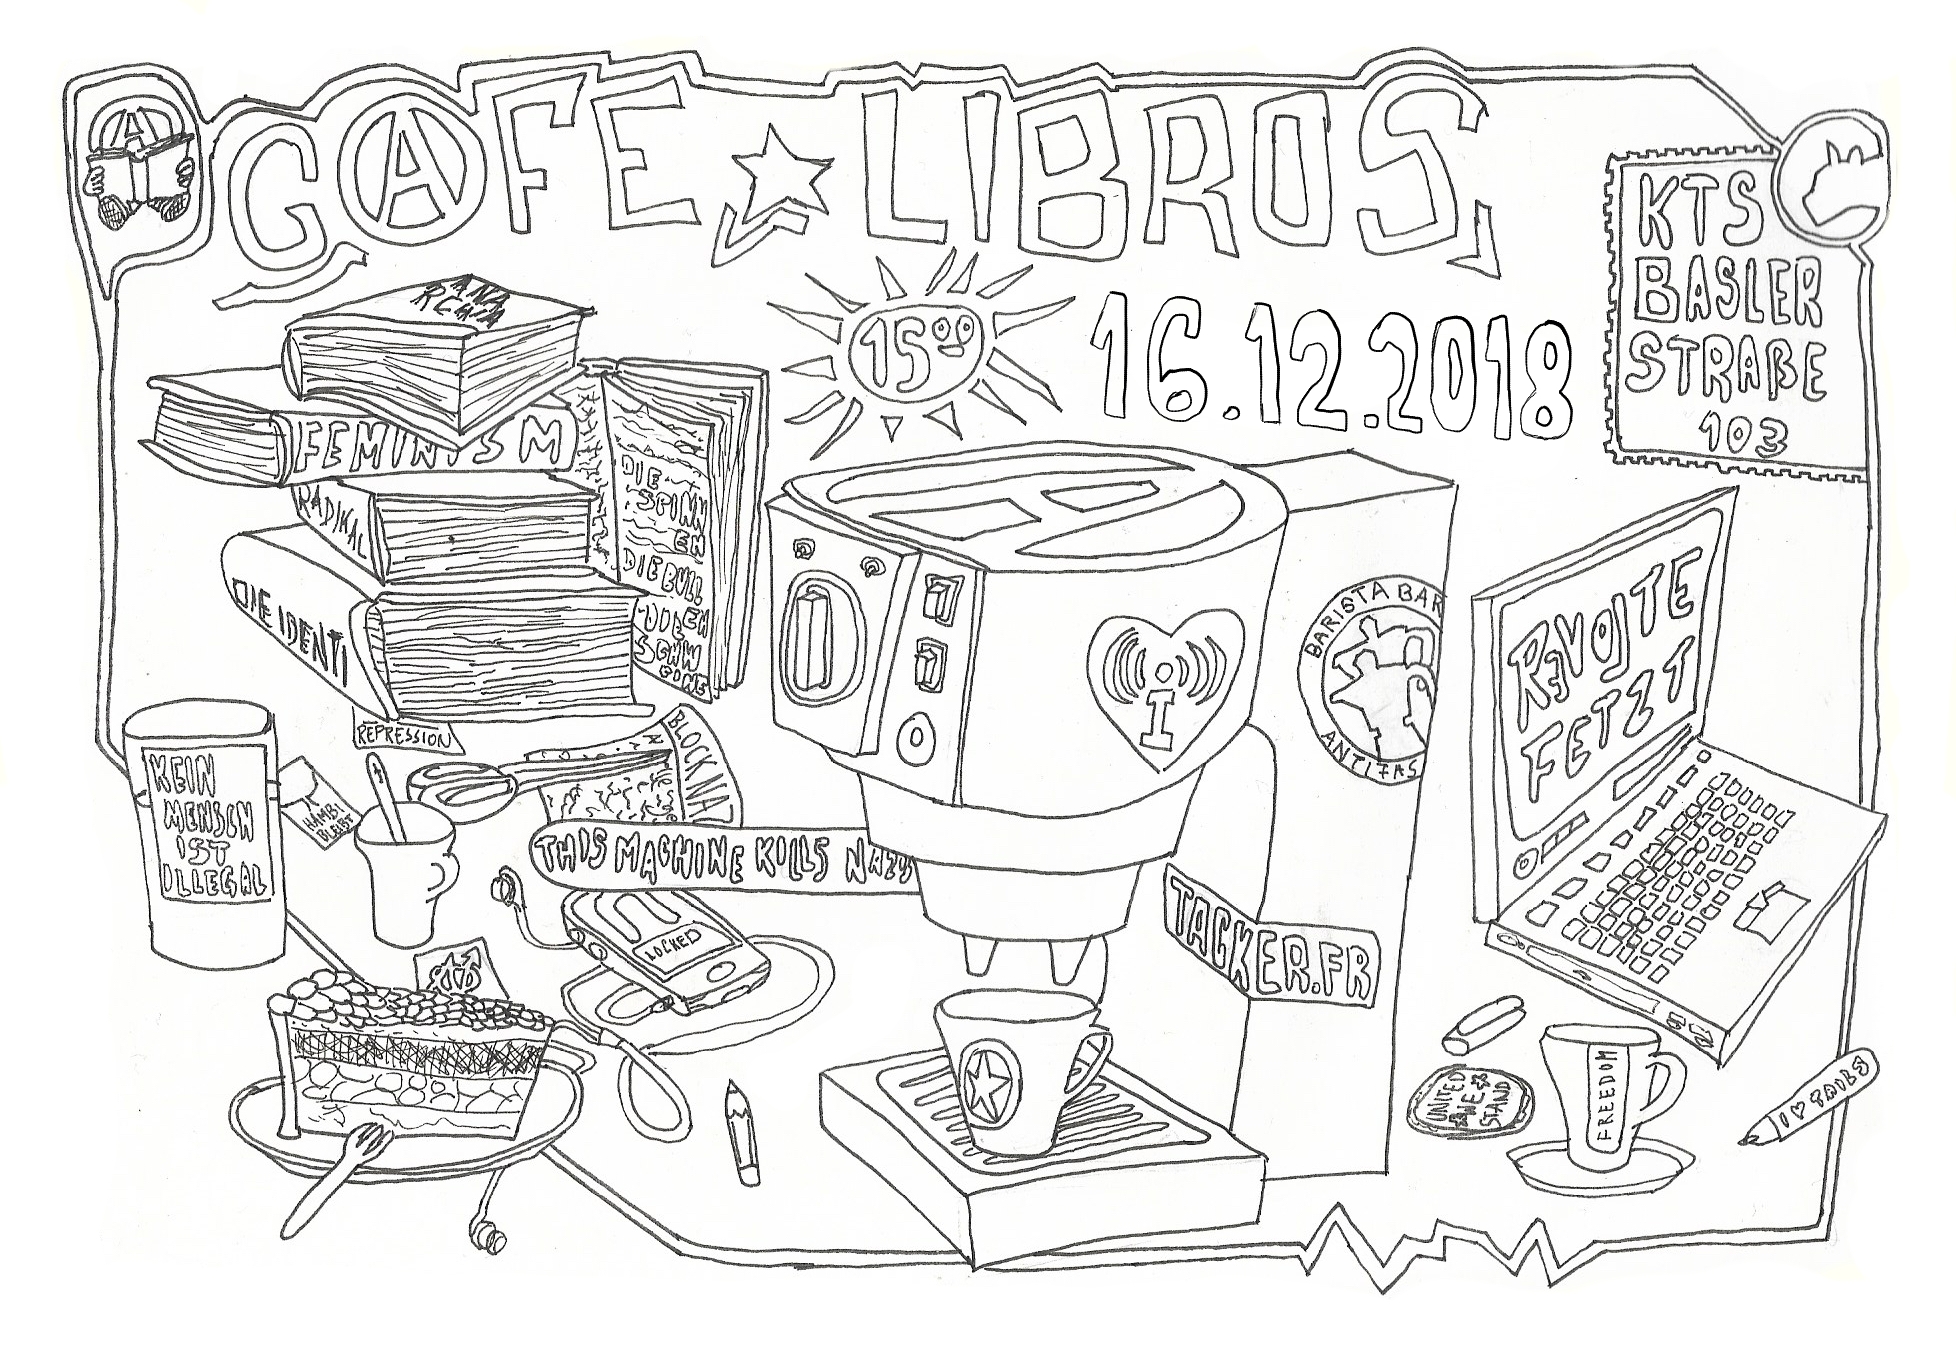 CAFE LIBROS
15⁰⁰
16.12.2018
KTS
BASLER
STRAßE
103
ANA
RCHIA
FEMINISM
RADIKAL
DIE IDENTI
DIE
SPINN
EN
DIE BULL
EN
DIE
SCHW
EINE
REPRESSION
BLOCK NA
KEIN
MENSCH
IST
ILLEGAL
HAMBI
BLEIBT
THIS MACHINE KILLS NAZIS
LOCKED
BARISTA BAR
ANTIFAS
TACKER.FR
REVOLTE
FETZT
UNITED
WE
STAND
FREEDOM
I ♥ TAILS